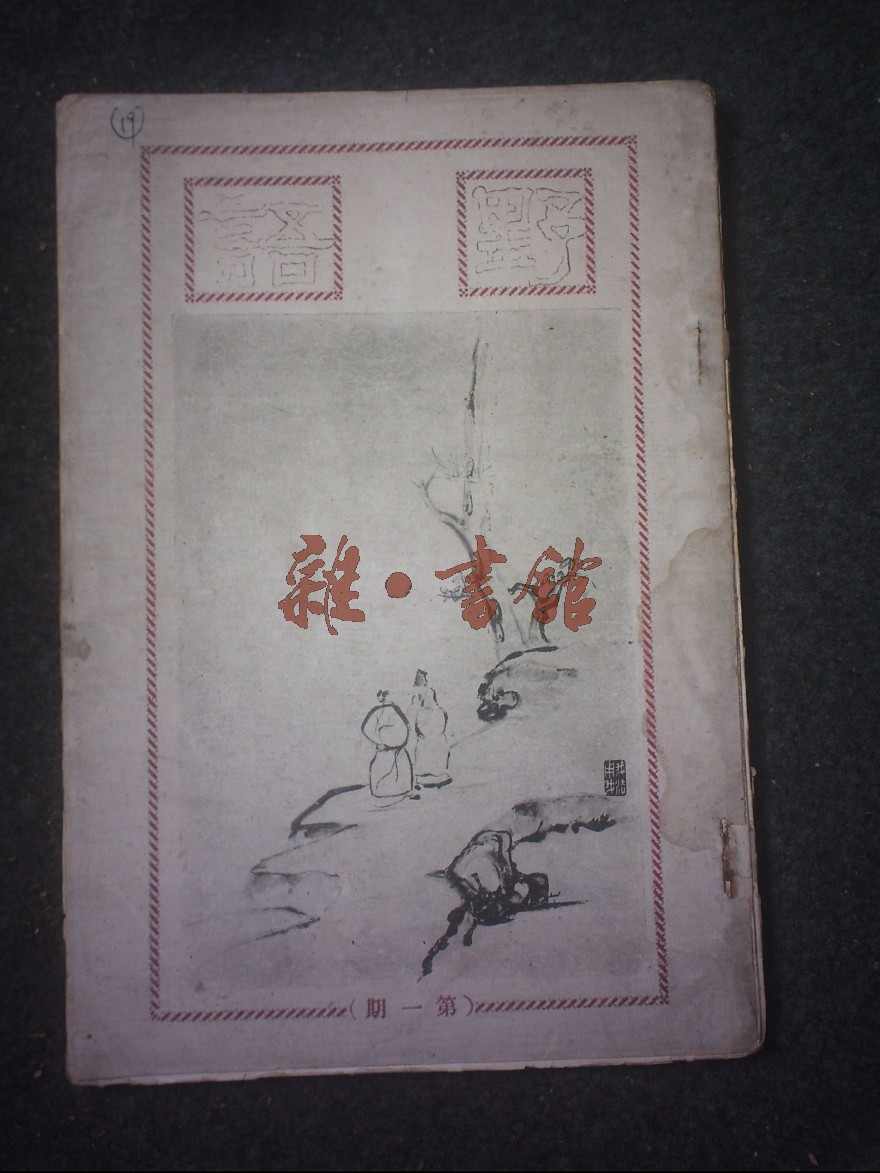 19
野語
雜·書館
（第一期）